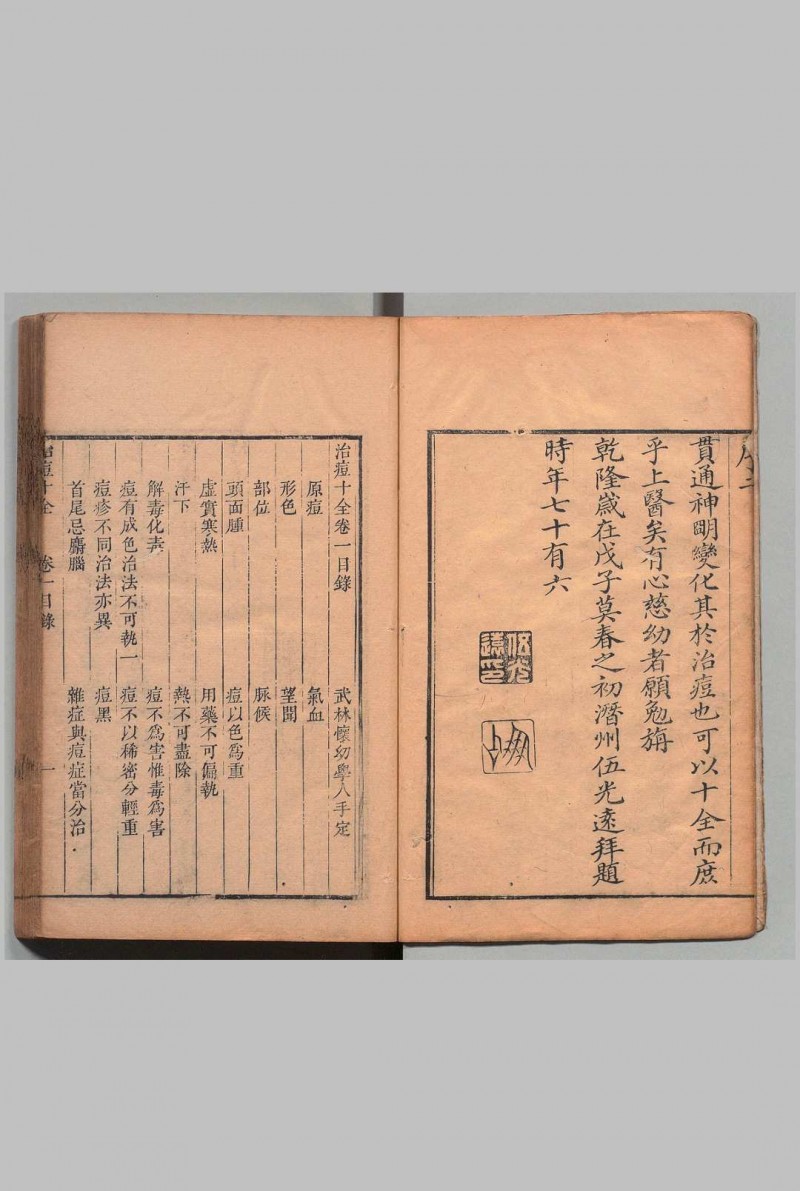 貫通神明變化其於治痘也可以十全而庶
乎上醫矣有心慈幼者願勉旃
乾隆歲在戊子莫春之初潛州伍光遠拜題
時年七十有六
伍光遠印
治痘十全卷一目錄 武林懷幼學人手定
原痘 氣血
形色 望聞
部位 脈候
頭面腫 痘以色爲重
虛實寒熱 用藥不可偏執
汗下 熱不可盡除
解毒化毒 痘不爲害惟毒爲害
痘有成色治法不可執一 痘不以稀密分輕重
痘疹不同治法亦異 痘黑
首尾忌麝腦 雜症與痘症當分治
治痘十全 卷一目錄 一